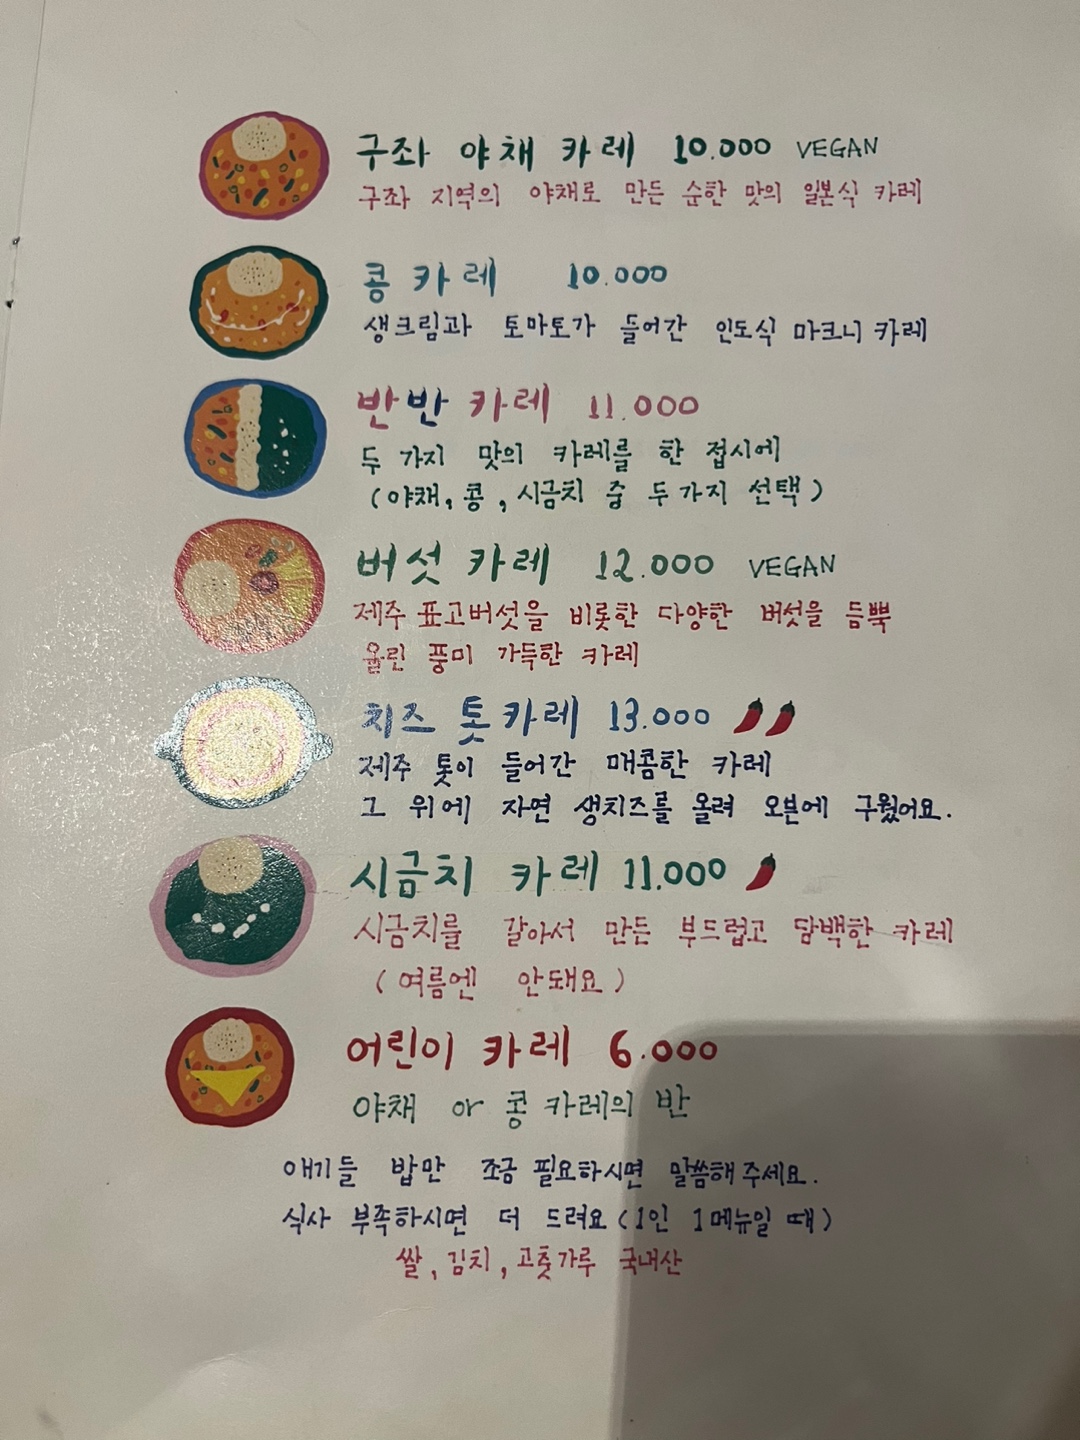 구좌 야채 카레 10.000 VEGAN
구좌 지역의 야채로 만든 순한 맛의 일본식 카레
콩 카레 10.000
생크림과 토마토가 들어간 인도식 마크니 카레
반반 카레 11.000
두 가지 맛의 카레를 한 접시에
(야채, 콩, 시금치 중 두가지 선택)
버섯 카레 12.000 VEGAN
제주 표고버섯을 비롯한 다양한 버섯을 듬뿍
올린 풍미 가득한 카레
치즈 톳카레 13.000
제주 톳이 들어간 매콤한 카레
그 위에 자연 생치즈를 올려 오븐에 구웠어요.
시금치 카레 11.000
시금치를 갈아서 만든 부드럽고 담백한 카레
(여름엔 안돼요)
어린이 카레 6.000
야채 or 콩 카레의 반
애기들 밥만 조금 필요하시면 말씀해주세요.
식사 부족하시면 더 드려요 (1인 1메뉴일 때)
쌀, 김치, 고춧가루 국내산